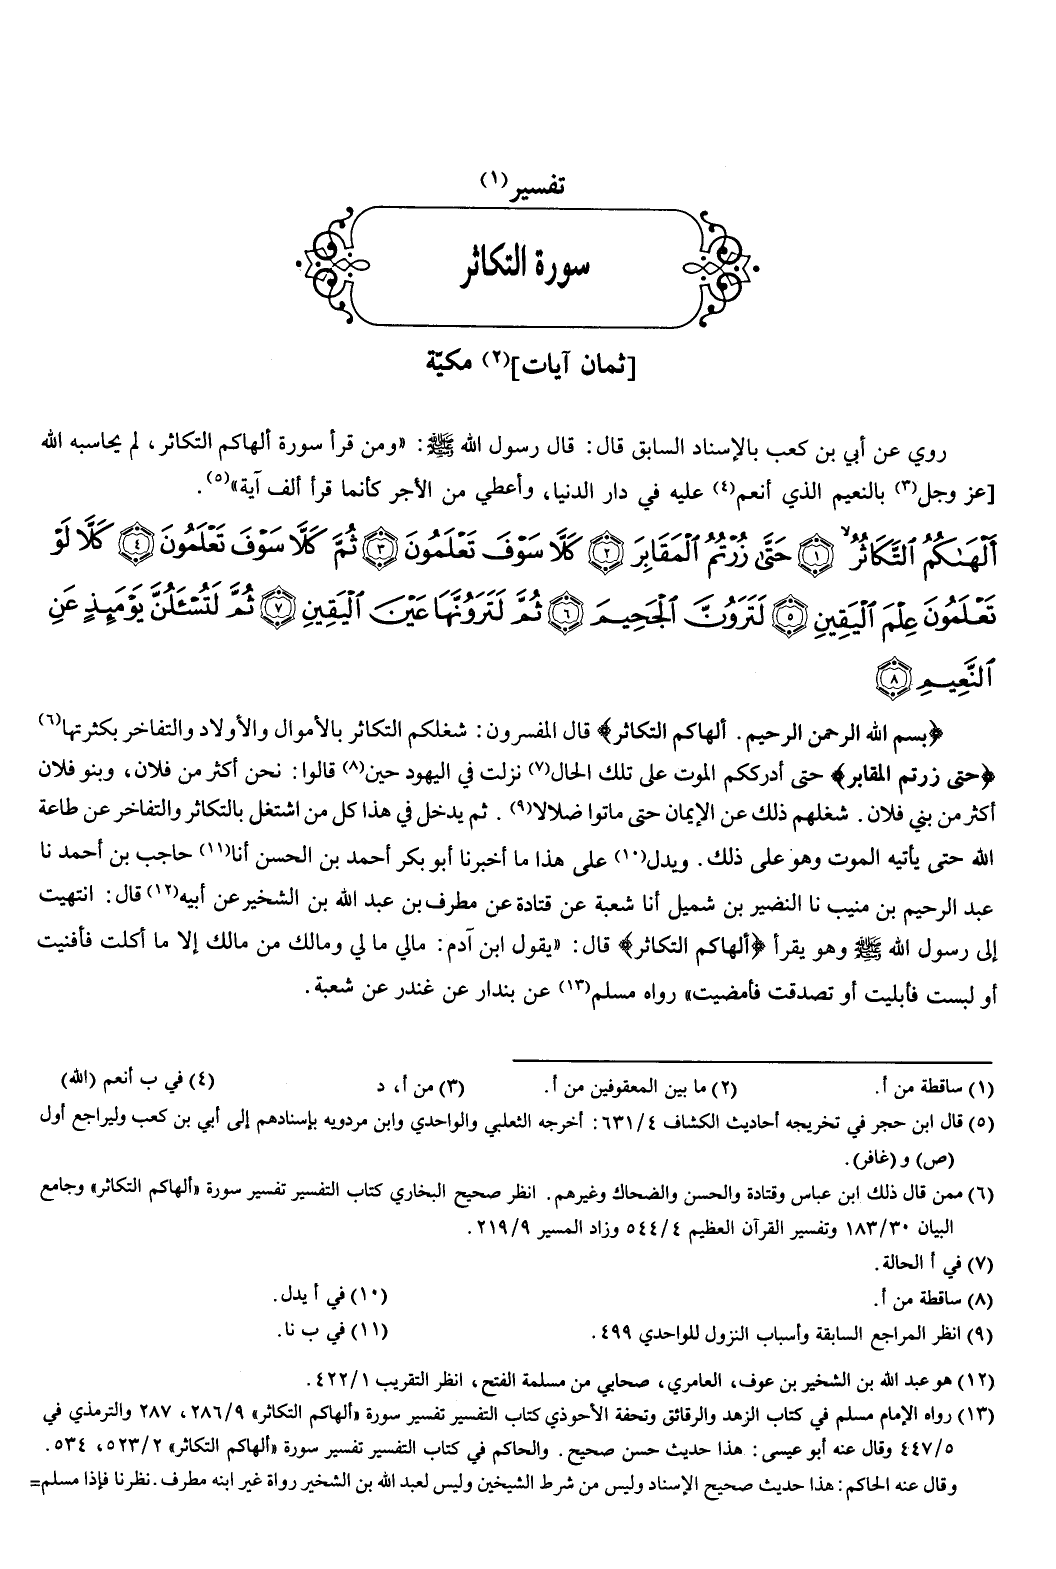 تفسير(١)
سورة التكاثر
[ثمان آيات](٢) مكيّة
روي عن أبي بن كعب بالإسناد السابق قال: قال رسول الله ﷺ: «ومن قرأ سورة ألهاكم التكاثر، لم يحاسبه الله
[عز وجل(٣) بالنعيم الذي أنعم(٤) عليه في دار الدنيا، وأعطي من الأجر كأنما قرأ ألف آية»(٥).
أَلْهَىٰكُمُ ٱلتَّكَاثُرُ ۙ ﴿١﴾ حَتَّىٰ زُرْتُمُ ٱلْمَقَابِرَ ﴿٢﴾ كَلَّا سَوْفَ تَعْلَمُونَ ﴿٣﴾ ثُمَّ كَلَّا سَوْفَ تَعْلَمُونَ ﴿٤﴾ كَلَّا لَوْ
تَعْلَمُونَ عِلْمَ ٱلْيَقِينِ ﴿٥﴾ لَتَرَوُنَّ ٱلْجَحِيمَ ﴿٦﴾ ثُمَّ لَتَرَوُنَّهَا عَيْنَ ٱلْيَقِينِ ﴿٧﴾ ثُمَّ لَتُسْـَٔلُنَّ يَوْمَئِذٍ عَنِ
ٱلنَّعِيمِ ﴿٨﴾
﴿بسم الله الرحمن الرحيم. ألهاكم التكاثر﴾ قال المفسرون: شغلكم التكاثر بالأموال والأولاد والتفاخر بكثرتها(٦)
﴿حتى زرتم المقابر﴾ حتى أدرككم الموت على تلك الحال(٧) نزلت في اليهود حين(٨) قالوا: نحن أكثر من فلان، وبنو فلان
أكثر من بني فلان. شغلهم ذلك عن الإيمان حتى ماتوا ضلالا(٩). ثم يدخل في هذا كل من اشتغل بالتكاثر والتفاخر عن طاعة
الله حتى يأتيه الموت وهو على ذلك. ويدل(١٠) على هذا ما أخبرنا أبو بكر أحمد بن الحسن أنا(١١) حاجب بن أحمد نا
عبد الرحيم بن منيب نا النضير بن شميل أنا شعبة عن قتادة عن مطرف بن عبد الله بن الشخير عن أبيه(١٢) قال: انتهيت
إلى رسول الله ﷺ وهو يقرأ ﴿ألهاكم التكاثر﴾ قال: «يقول ابن آدم: مالي ما لي ومالك من مالك إلا ما أكلت فأفنيت
أو لبست فأبليت أو تصدقت فأمضيت» رواه مسلم(١٣) عن بندار عن غندر عن شعبة.
(١) ساقطة من أ. (٢) ما بين المعقوفين من أ. (٣) من أ، د (٤) في ب أنعم (الله)
(٥) قال ابن حجر في تخريجه أحاديث الكشاف ٦٣١/٤: أخرجه الثعلبي والواحدي وابن مردويه بإسنادهم إلى أبي بن كعب وليراجع أول
(ص) و (غافر).
(٦) ممن قال ذلك ابن عباس وقتادة والحسن والضحاك وغيرهم. انظر صحيح البخاري كتاب التفسير تفسير سورة «ألهاكم التكاثر» وجامع
البيان ١٨٣/٣٠ وتفسير القرآن العظيم ٥٤٤/٤ وزاد المسير ٢١٩/٩.
(٧) في أ الحالة.
(٨) ساقطة من أ. (١٠) في أ يدل.
(٩) انظر المراجع السابقة وأسباب النزول للواحدي ٤٩٩. (١١) في ب نا.
(١٢) هو عبد الله بن الشخير بن عوف، العامري، صحابي من مسلمة الفتح، انظر التقريب ٤٢٢/١.
(١٣) رواه الإمام مسلم في كتاب الزهد والرقائق وتحفة الأحوذي كتاب التفسير تفسير سورة «ألهاكم التكاثر» ٢٨٦/٩، ٢٨٧ والترمذي في
٤٤٧/٥ وقال عنه أبو عيسى: هذا حديث حسن صحيح. والحاكم في كتاب التفسير تفسير سورة «ألهاكم التكاثر» ٥٢٣/٢، ٥٣٤.
وقال عنه الحاكم: هذا حديث صحيح الإسناد وليس من شرط الشيخين وليس لعبد الله بن الشخير رواة غير ابنه مطرف. نظرنا فإذا مسلم=